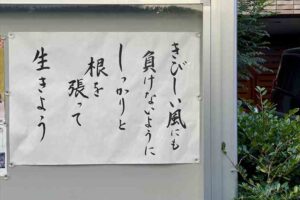 きびしい風にも
負けないように
しっかりと
根を張って
生きよう